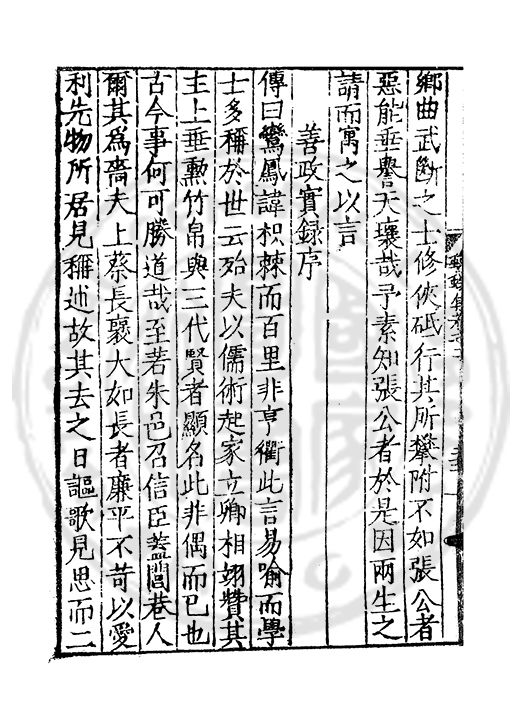 鄉曲武斷之士修俠砥行其所攀附不如張公者
惡能垂譽天壤哉予素知張公者於是因兩生之
請而寓之以言
善政實錄序
傳曰鸞鳳諱枳棘而百里非亨衢此言易喻而學
士多稱於世云殆夫以儒術起家立卿相翊贊其
主上垂勳竹帛與三代賢者顯名此非偶而已也
古今事何可勝道哉至若朱邑召信臣蓋閭巷人
爾其為嗇夫上蔡長褒大如長者廉平不苛以愛
利先物所居見稱述故其去之日謳歌見思而二